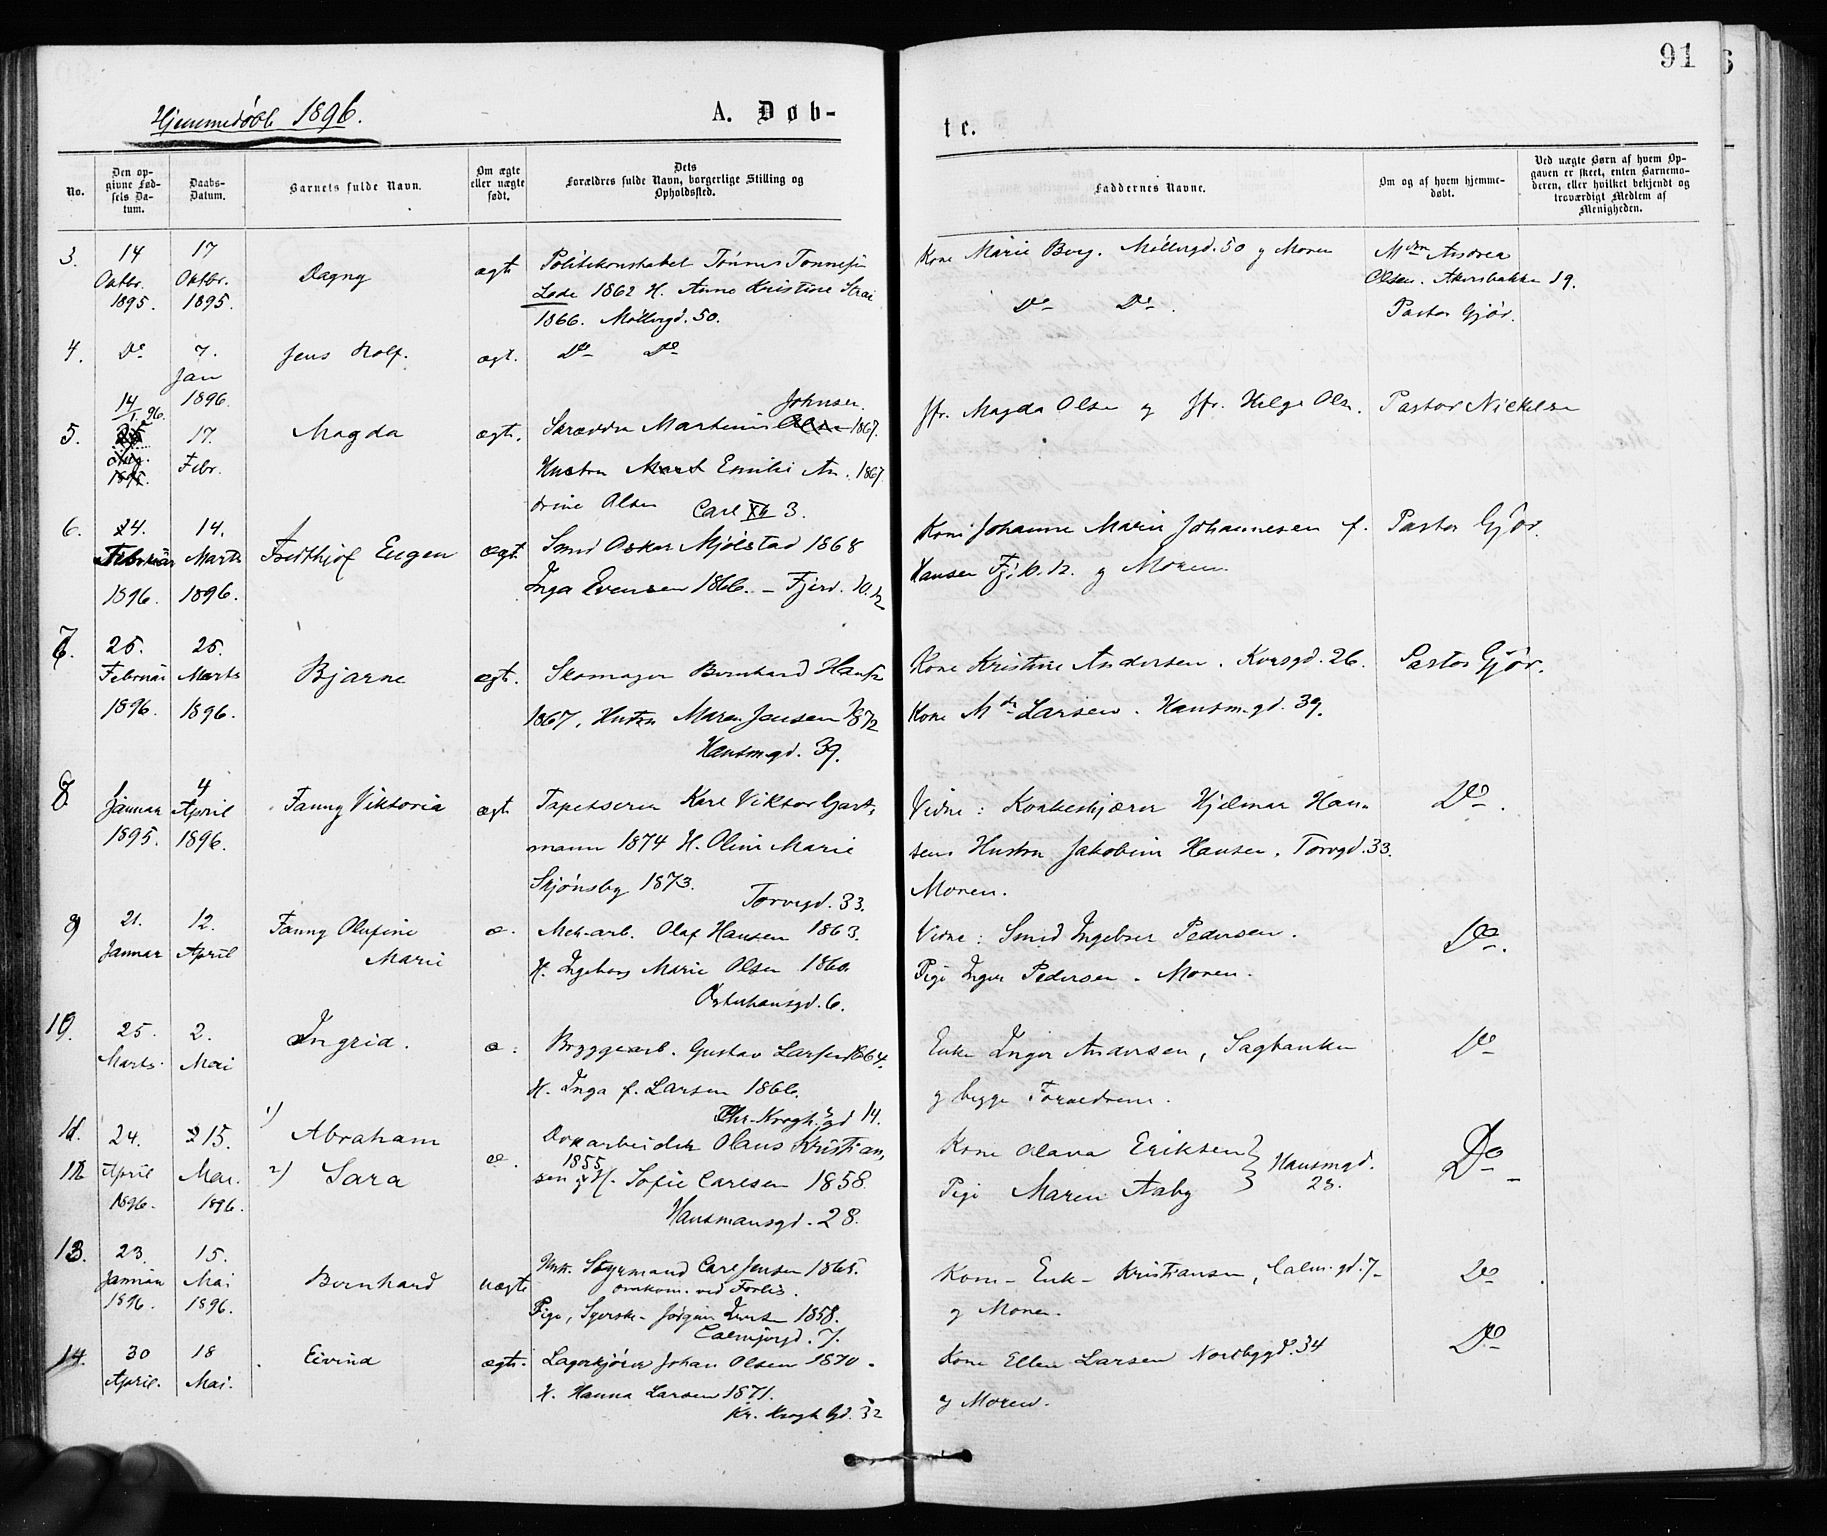 91
Hjemmedøbte 1896.
A. Døb-
te.
No.
Den op-
givne Fød-
sels Da-
tum.
Daabs-
Datum.
Barnets fulde Navn.
Om ægte
eller uægte
født.
Dets
Forældres fulde Navn, borgerlige Stilling og
Opholdssted.
Faddernes Navne.
Om og af hvem hjemme-
døbt.
Ved uægte Børn af hvem Op-
gaven er skeet, enten Barnemo-
deren, eller hvilket bekjendt og
troværdigt Medlem af
Menigheden.
3.
14
Oktbr.
1895.
17
Oktbr.
1895.
Dagny
ægt.
Politikonstabel Tønnes Tønnesen
Lode 1862 H. Anne Kristine
1866. Møllergd. 50.
Kone Marie Berg. Møllergd. 50 og Moren
Do Do.
Mdm Andrea
Olsen. Akersbakken 19.
Pastor Gjør.
4.
Do
7.
Jan
1896.
Jens Rolf.
ægt.
Do Do
5.
14/1 96.
1895.
17.
Febr.
Magda
ægt.
Johnsen
Skrædder Martinius 1867.
Hustru Emilie An. 1867.
drine Olsen Carl XII 3.
Jfr. Magda Olsen og Jfr. Helga Olsn.
Pastor Nickelsen
6.
24.
Februar
1896.
14.
Marts
1896.
Fridthjof Eugen
ægt.
Smed Oskar Mjölstad 1868
Inga Evensen 1866. - Fjerd. 10.b
Kone Johanne Marie Johannesen f.
Hansen Fj. 10. b. og Moren.
Pastor Gjør.
7.
25.
Februar
1896.
25.
Marts
1896.
Bjarne
ægt.
Skomager Bernhard Hansen
1867, Hustru Maren Jensen 1872
Hausm.gd. 39.
Kone Kristine Andersen. Korsgd. 26.
Kone Mdm Larsen. Hausm.gd. 39.
Pastor Gjør.
8
Januar
1895.
4
April
1896.
Fanny Viktoria
ægt.
Tapetserer Karl Viktor Gart-
mann 1874 H. Oline Marie
Skjønsby 1873.
Torvgd. 33.
Vidne: Hjelmar Han-
sens Hustru Jakobine Hansen. Torvgd. 33.
Moren.
Do.
9
21.
Januar
12.
April
Fanny Olufine
Marie
æ.
Mek. arb. Olaf Hansen 1863.
H. Ingeborg Marie Olsen 1860.
Østerhausgd. 6.
Vidne: Smed Ingebret Pedersen.
Pige Inger Pedersen. Moren.
Do.
10.
25.
Marts.
2.
Mai
Ingrid.
æ.
Bryggearb. Gustav Larsen 1864.
H. Inga f. Larsen 1866.
Chr. Kroghs gd 14.
Enke Inger Andersen, Sagbanken
og begge Forældrene.
Do
11.
12
24.
April
1896.
15.
Mai.
1896.
1) Abraham
2) Sara
æ.
Olaus Kristian-
1855
sen og H. Sofie Carlsen 1858.
Hausmansgd. 28.
Kone Olava Eriksen
Pige Maren Aaby
Hausmgd.
28.
Do
13.
23.
Januar
1896.
15.
Mai
1896.
Bernhard
uægte
Styrmand Carl Jensen 1865.
omkom. ved Forlis.
Pige, Syerske Jørgine Iversen 1858.
Calmeyergd. 7.
Kone - Enk - Kristiansen, Calm.gd. 7-
og Moren.
Do
14.
30
April.
18
Mai.
Eivind
ægte.
Lagerkjører Johan Olsen 1870.
H. Hanna Larsen 1871.
Kr. Krogh Gd. 32
Kone Ellen Larsen Nordbygd. 34
og Moren.
Do